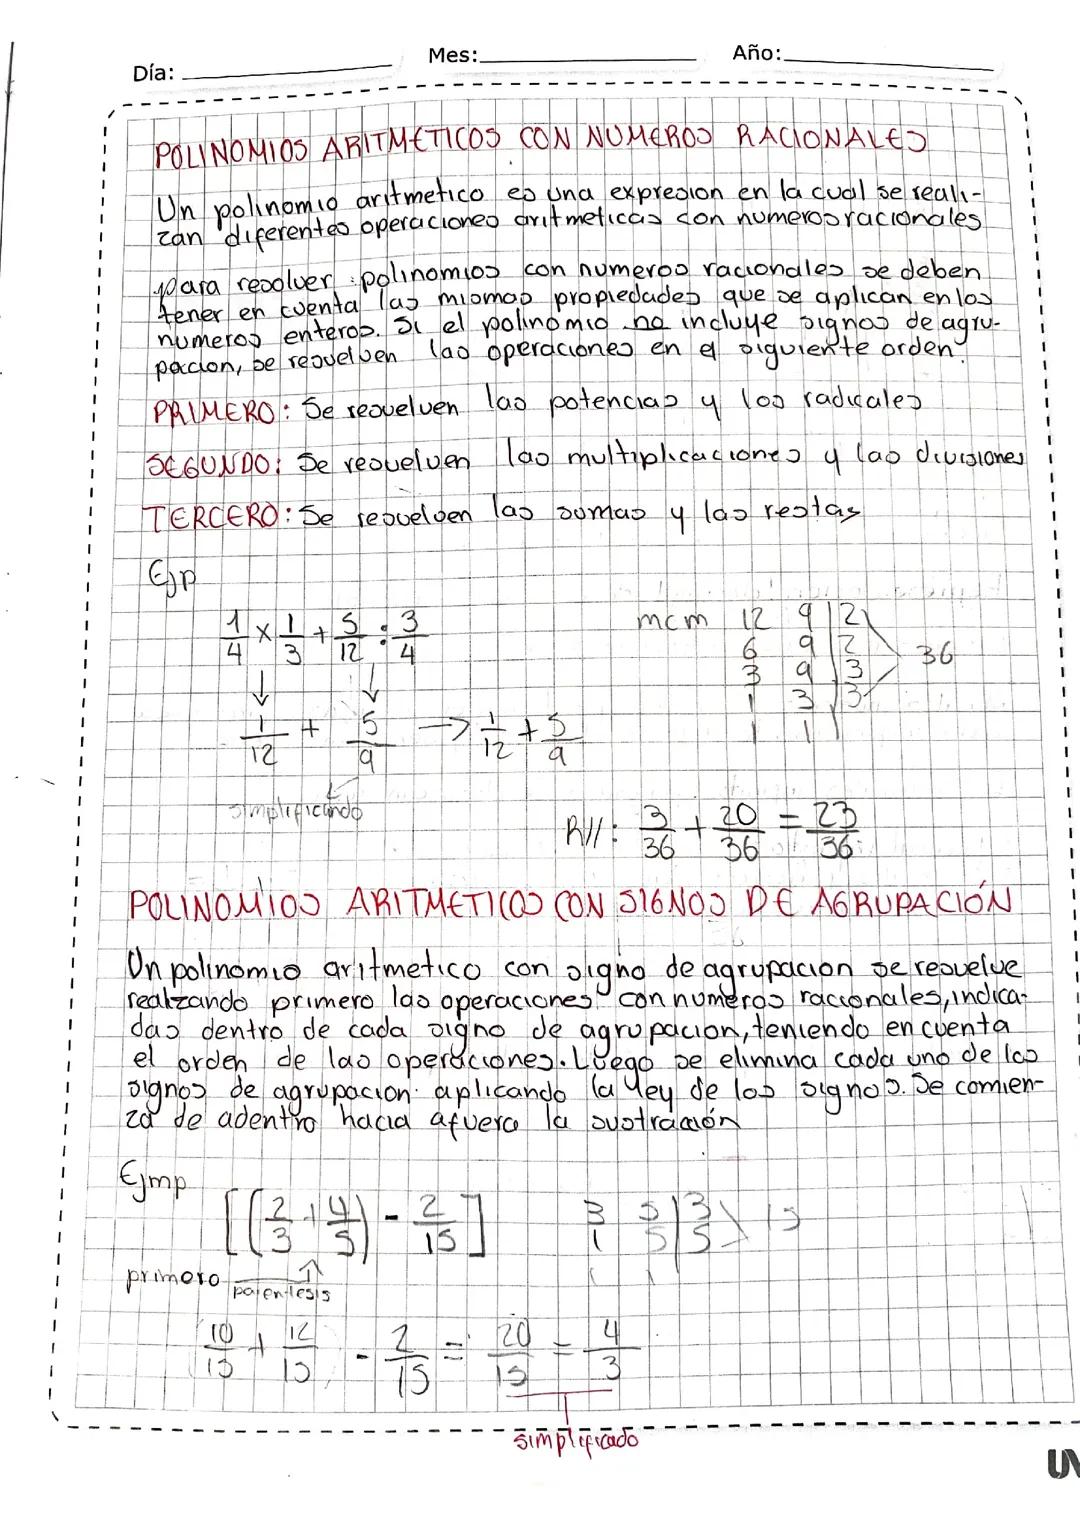 Día: Mes: Año:
POLINOMIOS ARITMETICOS CON NUMEROS RACIONALES
Un polinomio aritmetico es una expresion en la cual se reali-
zan diferentes operaciones aritmeticas con numeros racionales
para resolver polinomios con numeros racionales se deben
tener en cuenta las mismas propiedades que se aplican en los
numeros enteros. Si el polinomio no incluye signos de agru-
pacion, se resuelven las operaciones en el siguiente orden:
PRIMERO: Se resuelven las potencias y los radicales
SEGUNDO: Se resuelven las multiplicaciones y las divisiones
TERCERO: Se resuelven las sumas y las restas
Ejp
1/4 x 1/3 + 5/12 : 3/4
mcm 12 9 | 2
6 9 | 2
3 9 | 3
1 3 | 3
1 1
36
↓ ↓
1/12 + 5/9 → 1/12 + 5/9
simplificando
R//: 3/36 + 20/36 = 23/36
POLINOMIOS ARITMETICOS CON SIGNOS DE AGRUPACIÓN
Un polinomio aritmetico con signo de agrupacion se resuelve
realzando primero las operaciones con numeros racionales, indica-
das dentro de cada signo de agrupacion, teniendo en cuenta
el orden de las operaciones. Luego se elimina cada uno de los
signos de agrupacion aplicando la ley de los signos. Se comien-
za de adentro hacia afuera la sustracción
Ejmp
[(2/3 + 4/5) - 2/15]
3 5 | 3
1 5 | 5
1 1
15
primero parentesis
10/15 + 12/15 - 2/15 = 20/15 = 4/3
simplificado